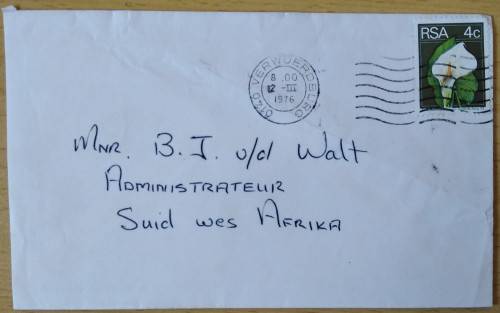 RSA 4c
0140 VERWOERDBURG
8.00
12 -III
1976
MNR. B. J. v/d Walt
ADMINISTRATEUR
Suid wes AFRIKA